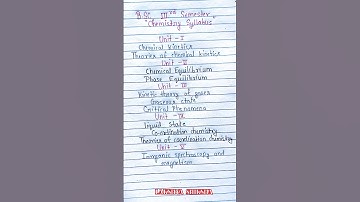 B.SC IIIrd Semester
"Chemistry Syllabus"
Unit - I
Chemical Kinetics
Theories of chemical kinetics
Unit - II
Chemical Equilibrium
Phase Equilibrium
Unit - III
Kinetic theory of gases
Gaseous state
Critical Phenomena
Unit - IV
Liquid State
Co-ordination chemistry
Theories of coordination chemistry
Unit - V
Inorganic spectroscopy and
magnetism